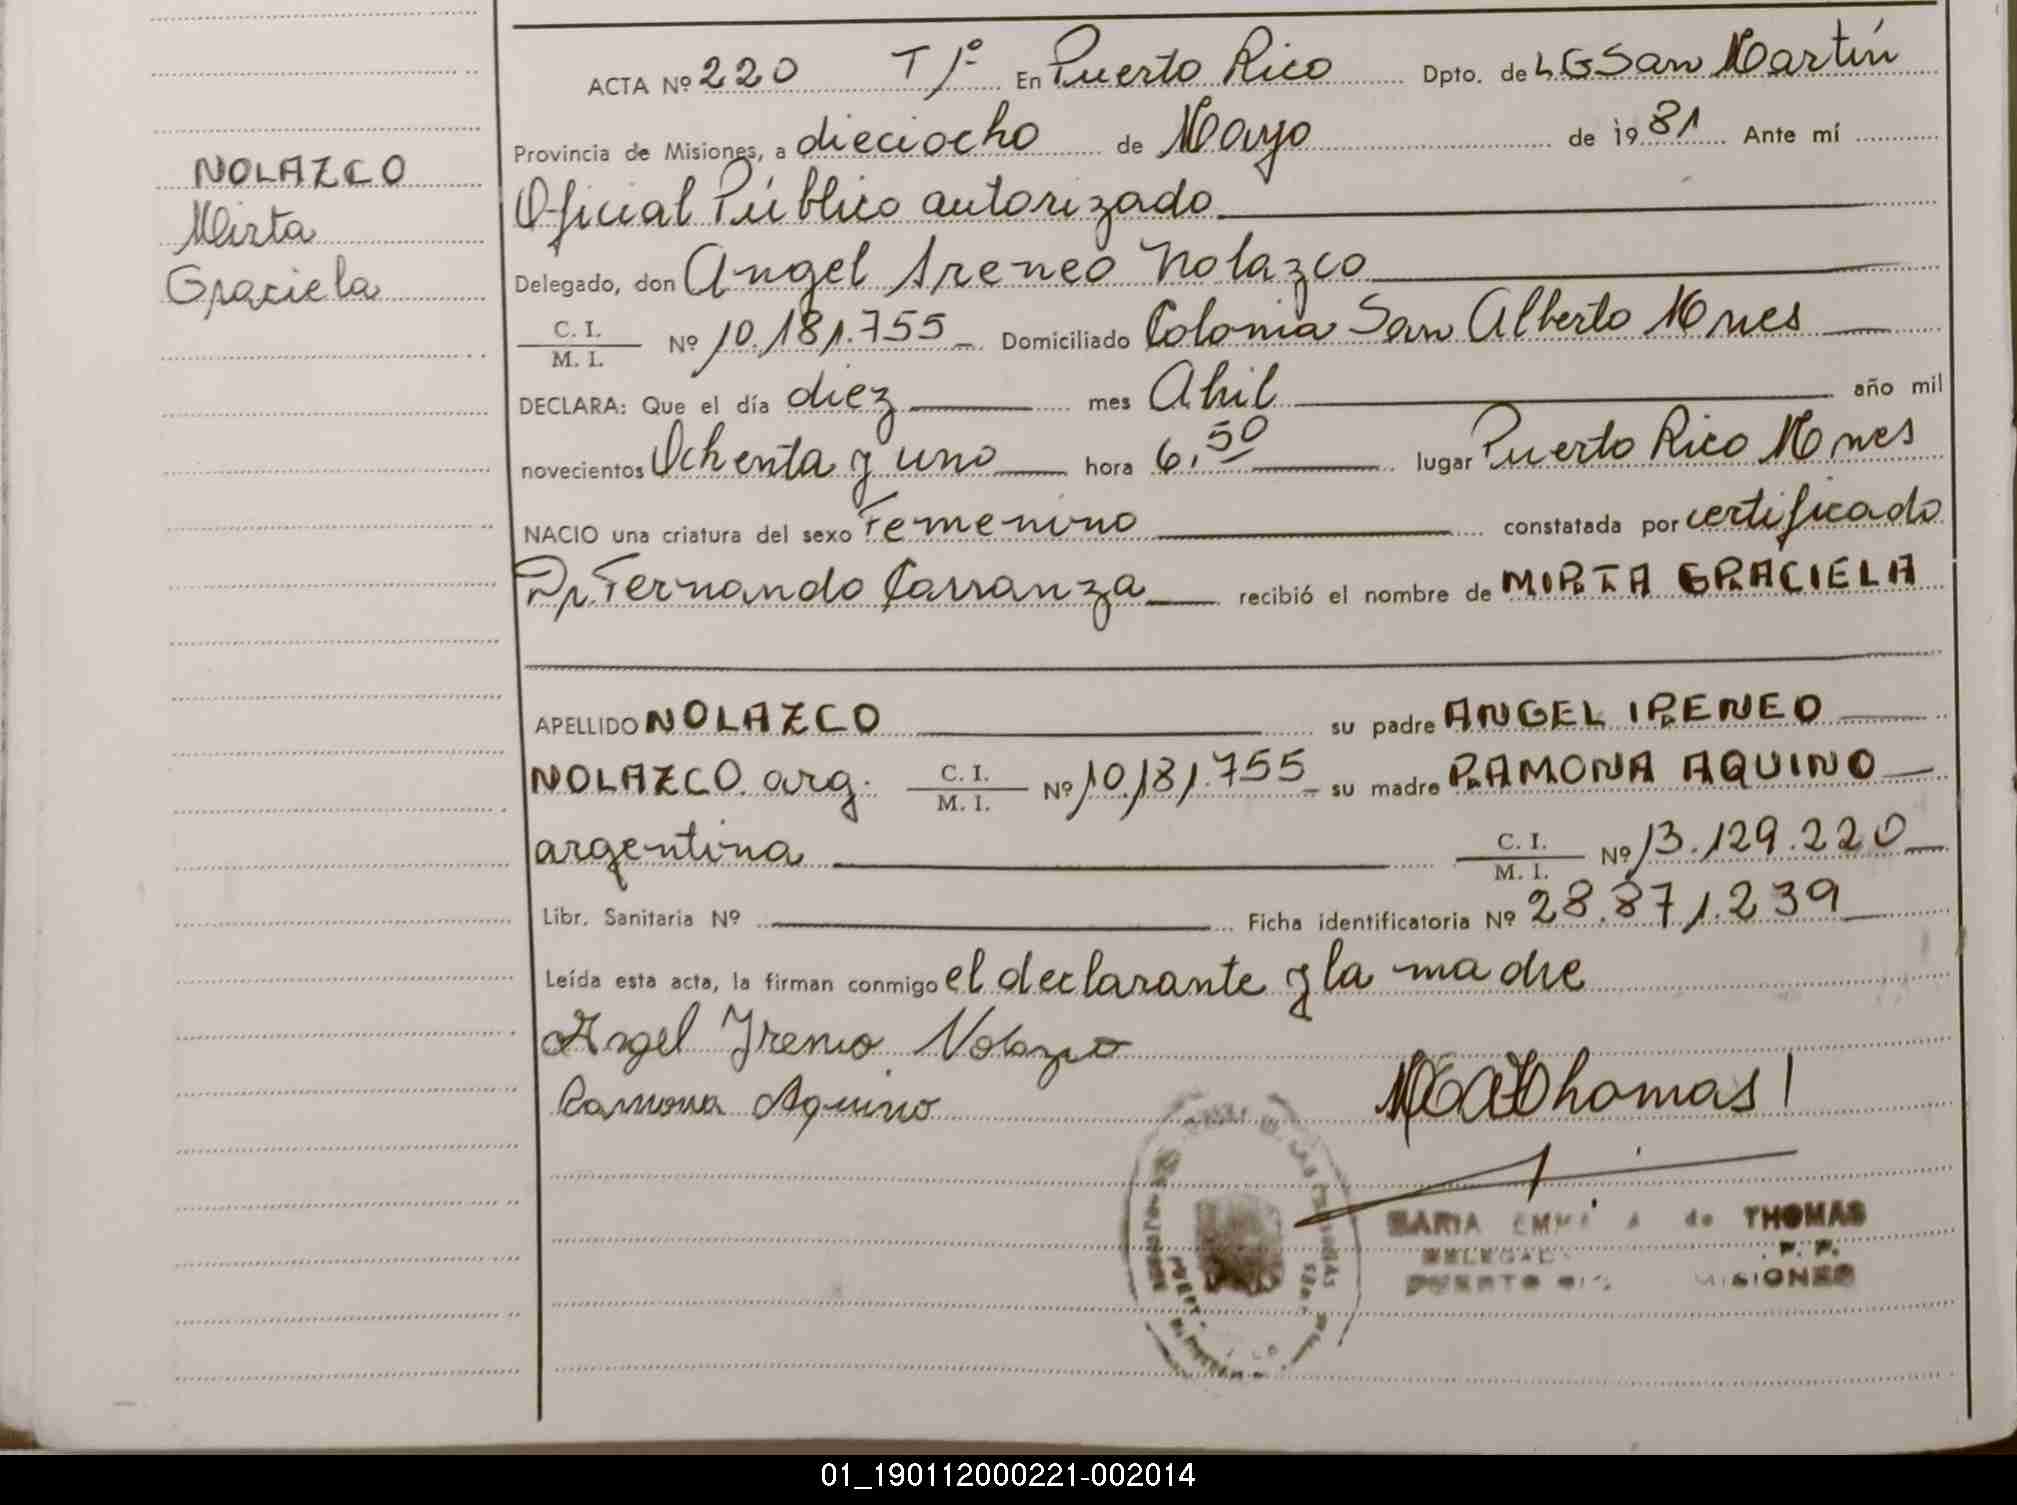 NOLAZCO
Mirta
Graciela
ACTA Nº 220 T 1º En Puerto Rico Dpto. de L G San Martín
Provincia de Misiones, a dieciocho de Mayo de 1981 Ante mí
Oficial Público autorizado
Delegado, don Angel Ireneo Nolazco
C. I. / M. I. Nº 10.181.755 Domiciliado Colonia San Alberto Mnes
DECLARA: Que el día diez mes Abril año mil
novecientos Ochenta y uno hora 6,50 lugar Puerto Rico Mnes
NACIO una criatura del sexo Femenino constatada por certificado
Dr. Fernando Carranza recibió el nombre de MIRTA GRACIELA
APELLIDO NOLAZCO su padre ANGEL IRENEO
NOLAZCO. arg. C. I. / M. I. Nº 10.181.755 su madre RAMONA AQUINO
argentina C. I. / M. I. Nº 13.129.220
Libr. Sanitaria Nº Ficha identificatoria Nº 28.871.239
Leída esta acta, la firman conmigo el declarante y la madre
Angel Ireneo Nolazco
Ramona Aquino
Thomas
MARIA de THOMAS
DELEGADA
PUERTO RICO MISIONES
01_190112000221-002014